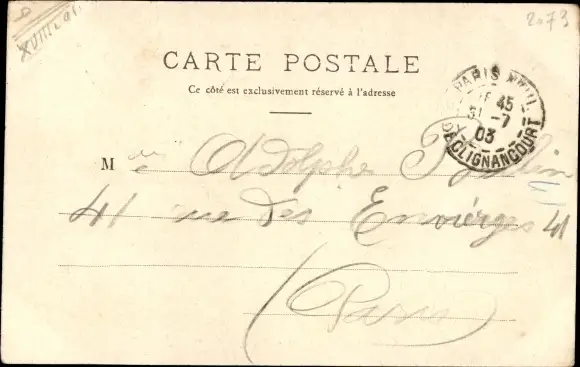 XVIIIe arr
2073
CARTE POSTALE
Ce côté est exclusivement réservé à l'adresse
PARIS XVIII.
45
31 -7
03
DE CLIGNANCOURT
M Adolphe
41 rue des Envierges 41
Paris